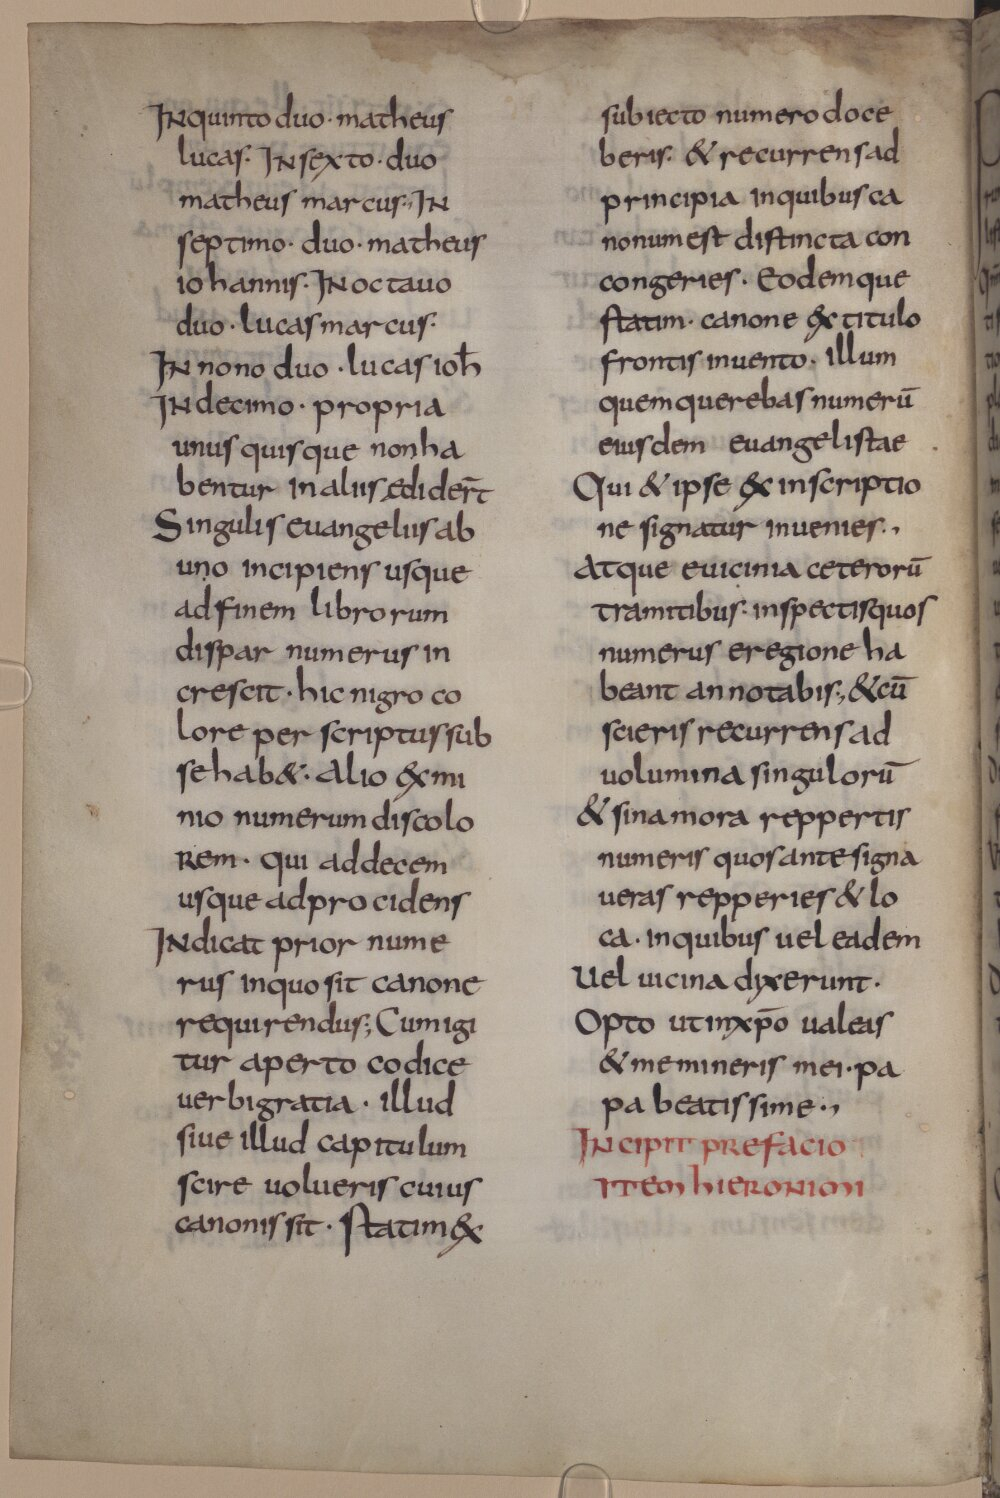 INquinto duo· matheus
lucas· INsexto· duo
matheus marcus·, IN
septimo· duo· matheus
iohannis· INoctauo
duo· lucas marcus·
INnono duo· lucas ioħ
INdecimo· propria
unus quisque non ha
bentur in aliis edider̄t
Singulis euangeliis ab
uno incipiens usque
ad finem librorum
dispar numerus in
crescit· hic nigro co
lore per scriptus sub
se hab&· alio ex mi
nio numerum discolo
rem· qui ad decem
usque ad procidens
INdicat prior nume
rus in quo sit canone
requirendus; Cum igi
tur aperto codice
uerbi gratia· illud
siue illud capitulum
scire uolueris cuius
canonis sit· statim ex
subiecto numero doce
beris· & recurrens ad
principia in quibus ca
nonum est distincta con
congeries· Eodemque
statim· canone ex titulo
frontis inuento· illum
quem querebas numerū
eiusdem euangelistae
Qui & ipse ex inscriptio
ne signatur inuenies·,
Atque e uicinia ceterorū
tramitibus· inspectis quos
numerus e regione ha
beant annotabis; & cū
scieris recurrens ad
uolumina singulorū
& sina mora reppertis
numeris quos ante signa
ueras repperies & lo
ca· in quibus uel eadem
Uel uicina dixerunt·
Opto ut in xp̄o ualeas
& memineris mei· pa
pa beatissime·,
INcipit prefacio
item hieronimi